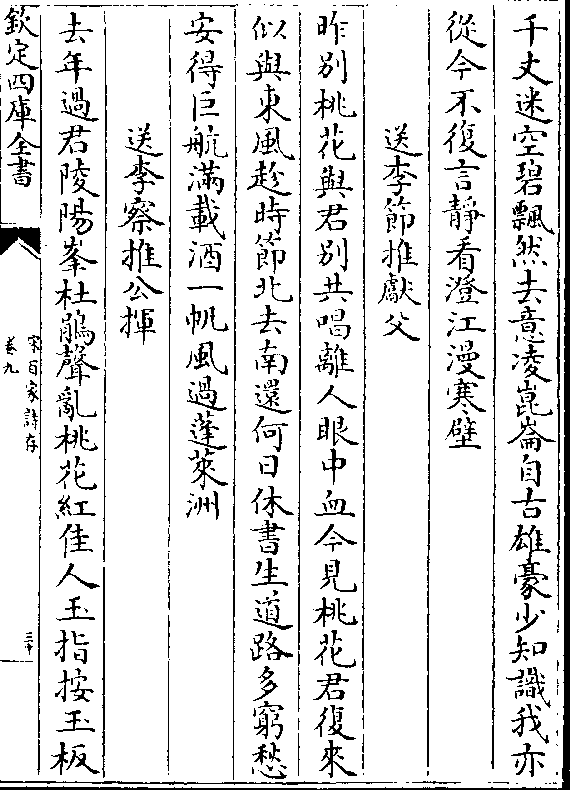 千丈迷空碧飄然去意凌崑崙自古雄豪少知識我亦
從今不復言靜看澄江漫寒壁
送李節推獻父
昨别桃花與君别共唱離人眼中血今見桃花君復來
似與東風趁時節北去南還何日休書生道路多窮愁
安得巨航滿載酒一帆風過蓬萊洲
送李察推公揮
去年過君陵陽峯杜鵑聲亂桃花紅佳人玉指按玉板
欽定四庫全書
宋百家詩存
卷九
三十